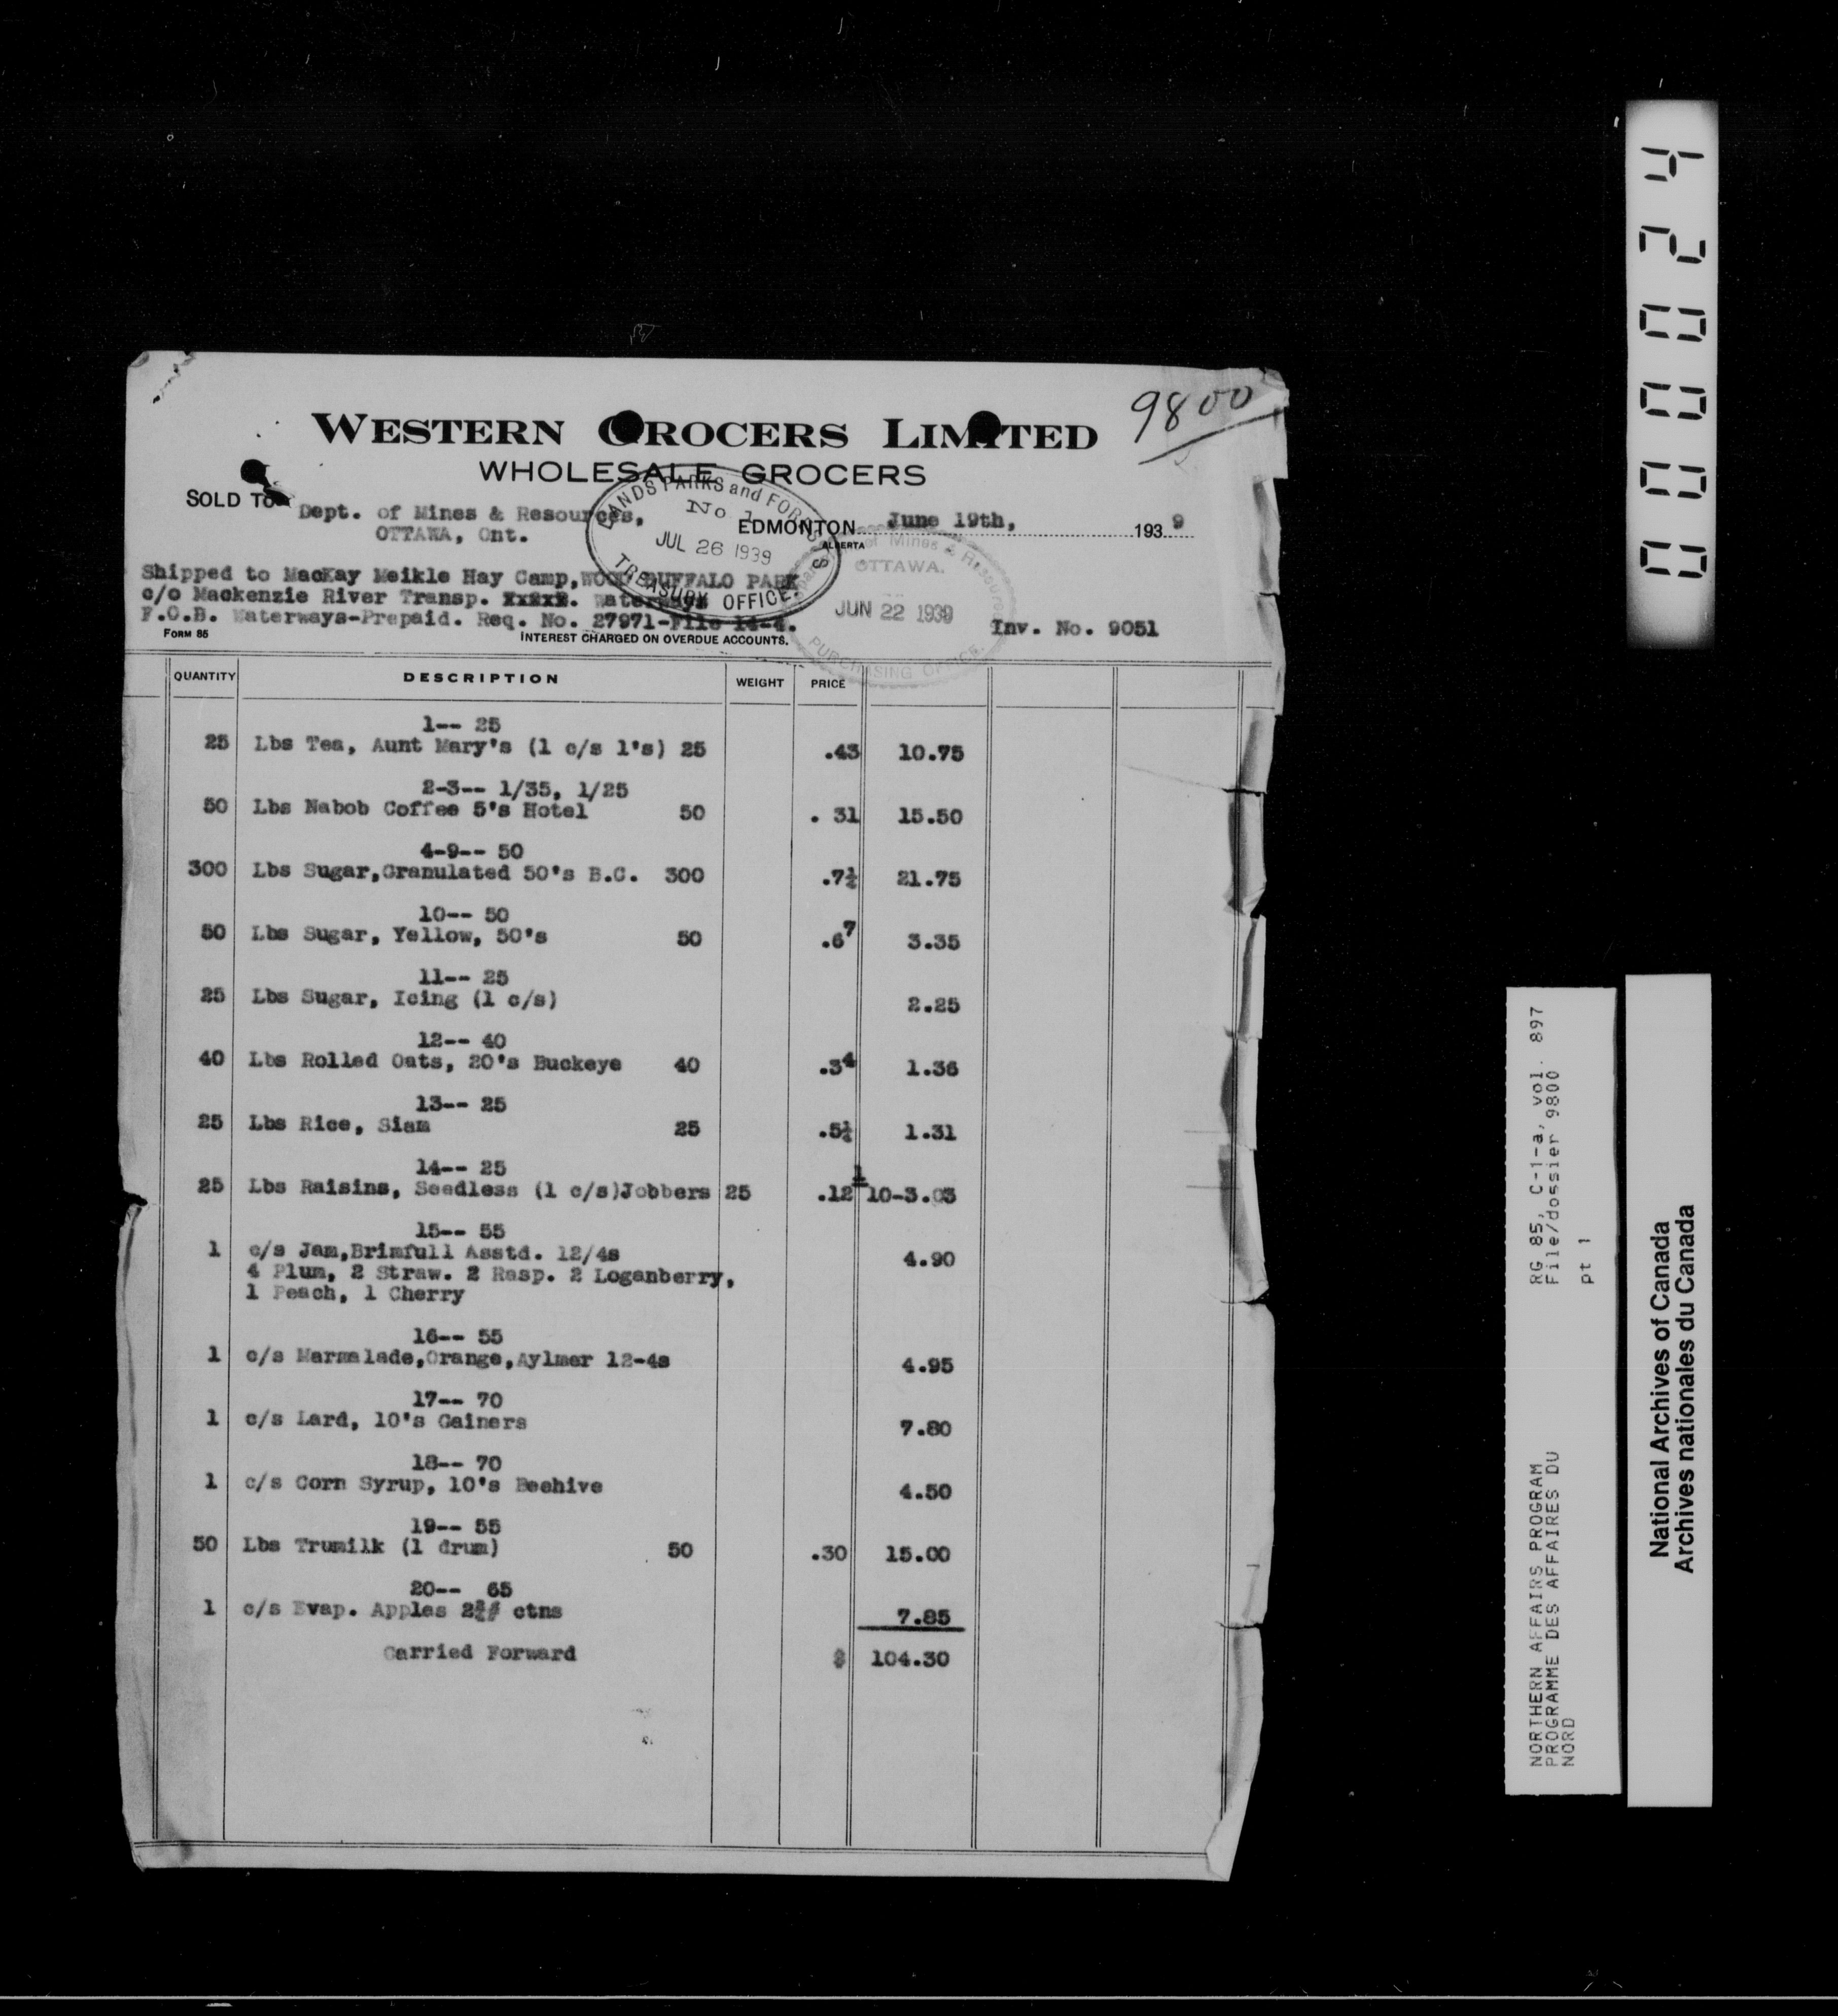 9800
WESTERN GROCERS LIMITED
WHOLESALE GROCERS
SOLD TO Dept. of Mines & Resources,
OTTAWA, Ont.
LANDS PARKS and FORESTS
No 1
JUL 26 1939
TREASURY OFFICE.
EDMONTON June 19th, 1939
ALBERTA
of Mines & Resources
OTTAWA.
JUN 22 1939
PURCHASING OFFICE
Shipped to MacKay Meikle Hay Camp, WOOD BUFFALO PARK
c/o Mackenzie River Transp. Waterways
F.O.B. Waterways-Prepaid. Req. No. 27971-File 14-4.
Inv. No. 9051
FORM 85 INTEREST CHARGED ON OVERDUE ACCOUNTS.
QUANTITY DESCRIPTION WEIGHT PRICE
1-- 25
25 Lbs Tea, Aunt Mary's (1 c/s 1's) 25 .43 10.75
2-3-- 1/35, 1/25
50 Lbs Nabob Coffee 5's Hotel 50 . 31 15.50
4-9-- 50
300 Lbs Sugar,Granulated 50's B.C. 300 .7¼ 21.75
10-- 50
50 Lbs Sugar, Yellow, 50's 50 .6⁷ 3.35
11-- 25
25 Lbs Sugar, Icing (1 c/s) 2.25
12-- 40
40 Lbs Rolled Oats, 20's Buckeye 40 .3⁴ 1.36
13-- 25
25 Lbs Rice, Siam 25 .5¼ 1.31
14-- 25
25 Lbs Raisins, Seedless (1 c/s)Jobbers 25 .12 1/10-3.03
15-- 55
1 c/s Jam,Brimfull Asstd. 12/4s 4.90
4 Plum, 2 Straw. 2 Rasp. 2 Loganberry,
1 Peach, 1 Cherry
16-- 55
1 c/s Marmalade,Orange,Aylmer 12-4s 4.95
17-- 70
1 c/s Lard, 10's Gainers 7.80
18-- 70
1 c/s Corn Syrup, 10's Beehive 4.50
19-- 55
50 Lbs Trumilk (1 drum) 50 .30 15.00
20-- 65
1 c/s Evap. Apples ctns 7.85
Carried Forward $ 104.30
000024
RG 85, C-1-a, vol. 897
File/dossier 9800
pt 1
NORTHERN AFFAIRS PROGRAM
PROGRAMME DES AFFAIRES DU
NORD
National Archives of Canada
Archives nationales du Canada